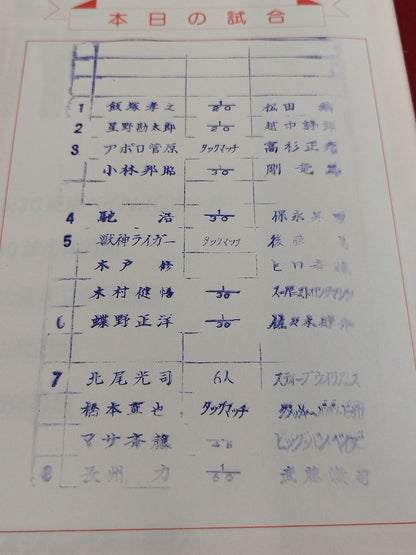 本日の試合
1 飯塚孝之 1/20 松田 納
2 星野勘太郎 1/20 越中詩郎
3 アポロ菅原 タッグマッチ 高杉正彦
小林邦昭 1/30 剛 竜馬
4 馳 浩 1/30 保永昇男
5 獣神ライガー タッグマッチ 後藤
木戸 修 ヒロ斎藤
木村健悟 1/30 スーパーストロングマシン
6 蝶野正洋 1/30 佐々木健介
7 北尾光司 6人 スティーブウイリアムス
橋本真也 タッグマッチ
マサ斎藤 ビッグバンベイダー
8 長州 力 1/60 武藤敬司